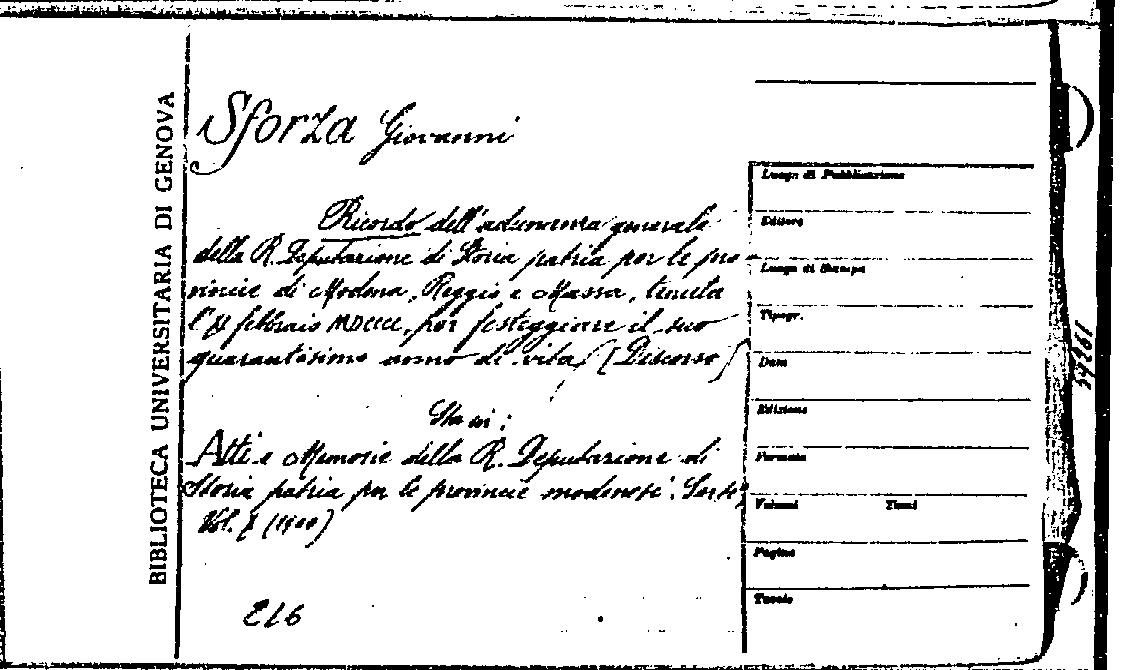 BIBLIOTECA UNIVERSITARIA DI GENOVA
Sforza Giovanni
Ricordo dell'adunanza generale
della R. Deputazione di Storia patria per le pro-
vincie di Modena, Reggio e Massa, tenuta
febbraio MDCCCC, per festeggiare il suo
quarantesimo anno di vita (Discorso)
Sta in:
Atti e Memorie della R. Deputazione di
Storia patria per le provincie modenesi. Serie
Vol. X (1900)
Luogo di Pubblicazione
Editore
Luogo di Stampa
Tipogr.
Data
Edizione
Formato
Volumi Tomi
Pagine
Tavole